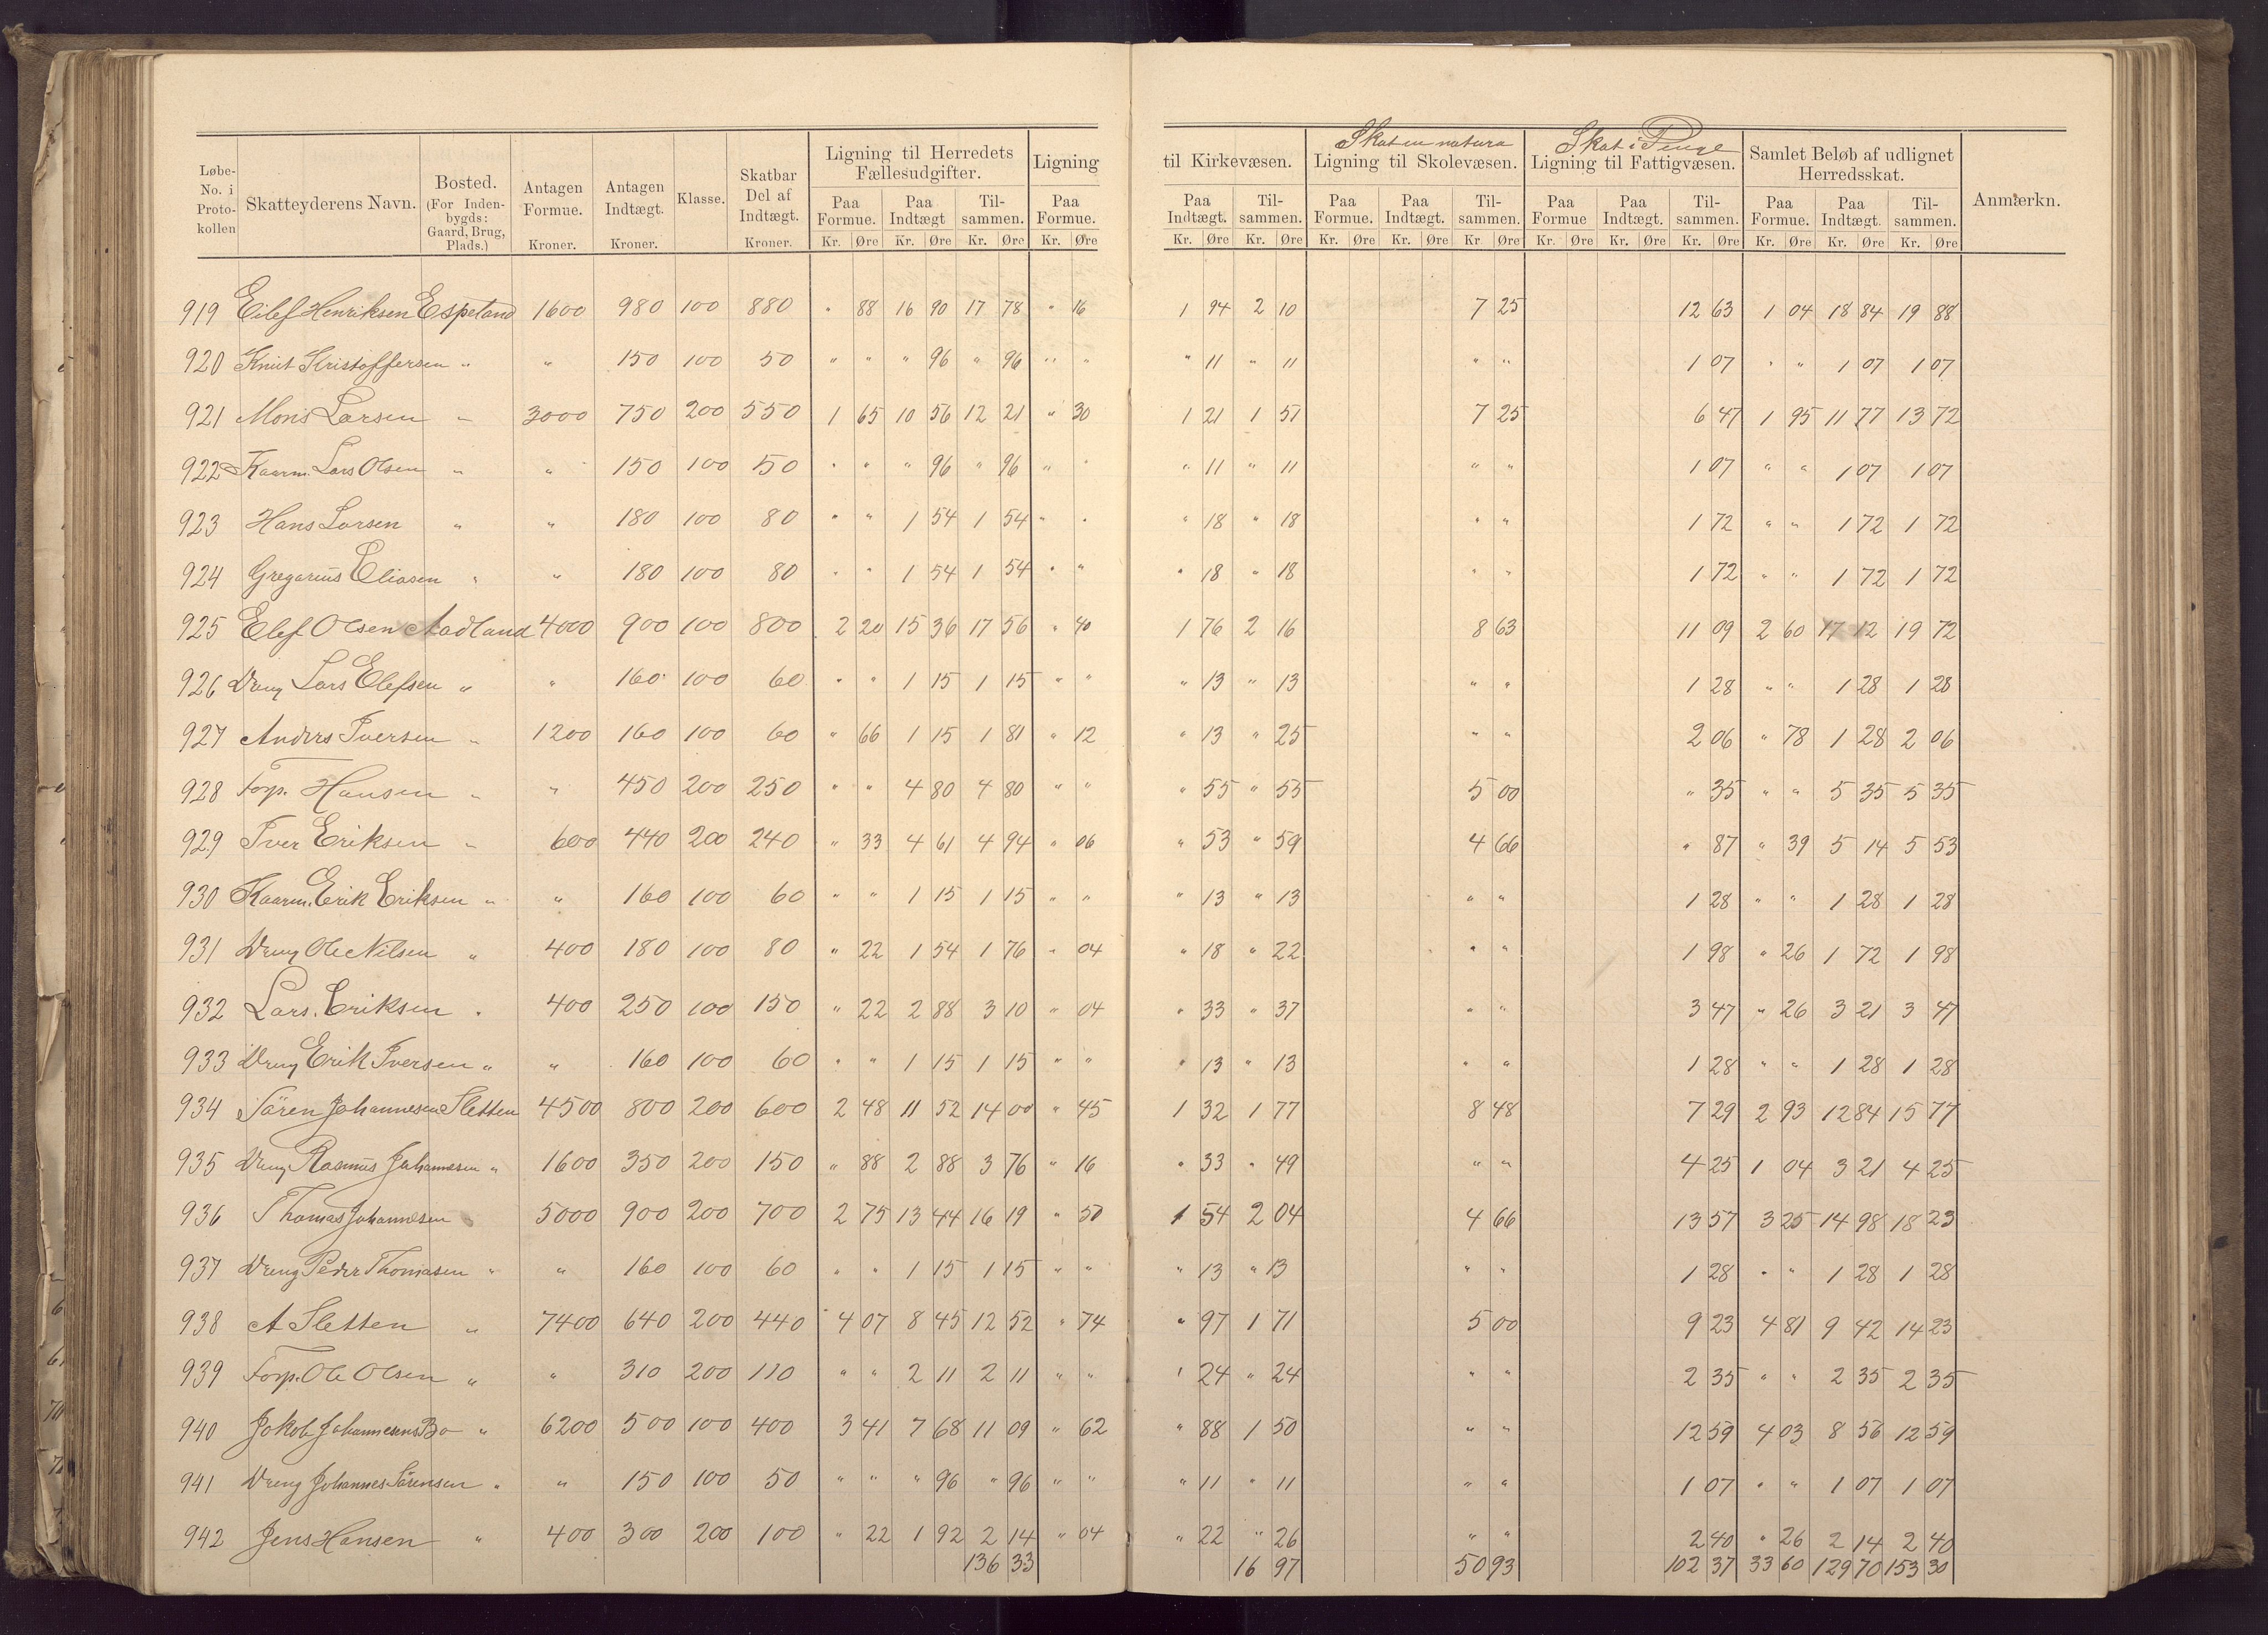 Skat in natura Skat i Penge
Løbe-No. i Protokollen | Skatteyderens Navn. | Bosted. (For Indenbygds: Gaard, Brug, Plads.) | Antagen Formue. Kroner. | Antagen Indtægt. Kroner. | Klasse. | Skatbar Del af Indtægt. Kroner. | Ligning til Herredets Fællesudgifter. Paa Formue. Kr. Øre Paa Indtægt Kr. Øre Tilsammen. Kr. Øre | Ligning Paa Formue. Kr. Øre | til Kirkevæsen. Paa Indtægt. Kr. Øre Tilsammen. Kr. Øre | Ligning til Skolevæsen. Paa Formue. Kr. Øre Paa Indtægt. Kr. Øre Tilsammen. Kr. Øre | Ligning til Fattigvæsen. Paa Formue Kr. Øre Paa Indtægt. Kr. Øre Tilsammen. Kr. Øre | Samlet Beløb af udlignet Herredsskat. Paa Formue. Kr. Øre Paa Indtægt. Kr. Øre Tilsammen. Kr. Øre | Anmærkn.
919 Eilef Henriksen Espeland 1600 980 100 880 " 88 16 90 17 78 " 16 1 94 2 10 7 25 12 63 1 04 18 84 19 88
920 Knut Kristoffersen " " 150 100 50 " " " 96 " 96 " " " 11 " 11 " " 1 07 " " 1 07 1 07
921 Mons Larsen " 3000 750 200 550 1 65 10 56 12 21 " 30 1 21 1 51 7 25 6 47 1 95 11 77 13 72
922 Kaarm. Lars Olsen " " 150 100 50 " " " 96 " 96 " " " 11 " 11 " " 1 07 " " 1 07 1 07
923 Hans Larsen " " 180 100 80 " " 1 54 1 54 " " " 18 " 18 " " 1 72 " " 1 72 1 72
924 Gregarius Eliasen " " 180 100 80 " " 1 54 1 54 " " " 18 " 18 " " 1 72 " " 1 72 1 72
925 Elef Olsen Aadland 4000 900 100 800 2 20 15 36 17 56 " 40 1 76 2 16 8 63 11 09 2 60 17 12 19 72
926 Dreng Lars Elefsen " " 160 100 60 " " 1 15 1 15 " " " 13 " 13 " " 1 28 " " 1 28 1 28
927 Anders Iversen " 1200 160 100 60 " 66 1 15 1 81 " 12 " 13 " 25 " " 2 06 " 78 1 28 2 06
928 Torp. Hansen " " 450 200 250 " " 4 80 4 80 " " " 55 " 55 5 00 " 35 " " 5 35 5 35
929 Iver Eriksen " 600 440 200 240 " 33 4 61 4 94 " 06 " 53 " 59 4 66 " 87 " 39 5 14 5 53
930 Kaarm. Erik Eriksen " " 160 100 60 " " 1 15 1 15 " " " 13 " 13 " " 1 28 " " 1 28 1 28
931 Dreng Ole Nilsen " 400 180 100 80 " 22 1 54 1 76 " 04 " 18 " 22 " " 1 98 " 26 1 72 1 98
932 Lars. Eriksen " 400 250 100 150 " 22 2 88 3 10 " 04 " 33 " 37 " " 3 47 " 26 3 21 3 47
933 Dreng Erik Iversen " " 160 100 60 " " 1 15 1 15 " " " 13 " 13 " " 1 28 " " 1 28 1 28
934 Sören Johannesen Sletten 4500 800 200 600 2 48 11 52 14 00 " 45 1 32 1 77 8 48 7 29 2 93 12 84 15 77
935 Dreng Rasmus Johannesen " 1600 350 200 150 " 88 2 88 3 76 " 16 " 33 " 49 " " 4 25 1 04 3 21 4 25
936 Thomas Johannesen 5000 900 200 700 2 75 13 44 16 19 " 50 1 54 2 04 4 66 13 57 3 25 14 98 18 23
937 Dreng Peder Thomasen " " 160 100 60 " " 1 15 1 15 " " " 13 " 13 " " 1 28 " " 1 28 1 28
938 A Sletten " 7400 640 200 440 4 07 8 45 12 52 " 74 " 97 1 71 5 00 9 23 4 81 9 42 14 23
939 Torp. Ole Olsen " " 310 200 110 " " 2 11 2 11 " " " 24 " 24 " " 2 35 " " 2 35 2 35
940 Jokob Johannesens Bo " 6200 500 100 400 3 41 7 68 11 09 " 62 " 88 1 50 " " 12 59 4 03 8 56 12 59
941 Dreng Johannes Sörensen " " 150 100 50 " " " 96 " 96 " " " 11 " 11 " " 1 07 " " 1 07 1 07
942 Jens Hansen " 400 300 200 100 " 22 1 92 2 14 " 04 " 22 " 26 " " 2 40 " 26 2 14 2 40
136 33 16 97 50 93 102 37 33 60 129 70 153 30